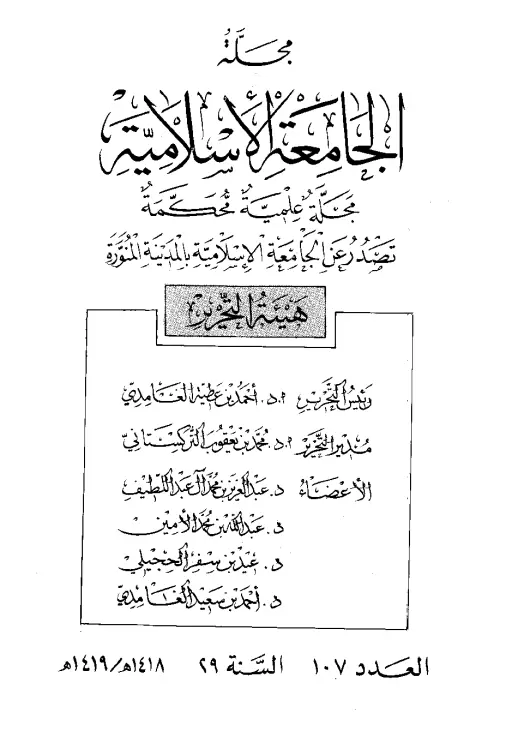 مَجَلَّةُ
الجَامِعَةِ الإِسْلَامِيَّةِ
مَجَلَّةٌ عِلْمِيَّةٌ مُحَكَّمَةٌ
تَصْدُرُ عَنِ الجَامِعَةِ الإِسْلَامِيَّةِ بِالمَدِينَةِ المُنَوَّرَةِ
هَيْئَةُ التَّحْرِيرِ
رَئِيسُ التَّحْرِيرِ أ.د. أَحْمَدُ بْنُ عَطِيَّةَ الغَامِدِيّ
مُدِيرُ التَّحْرِيرِ أ.د. مُحَمَّدُ بْنُ يَعْقُوبَ التُّرْكِسْتَانِيّ
الأَعْضَاءُ د. عَبْدُ العَزِيزِ بْنُ مُحَمَّدٍ آلُ عَبْدِ اللَّطِيفِ
د. عَبْدُ اللَّهِ بْنُ مُحَمَّدٍ الأَمِينُ
د. عِيدُ بْنُ سَفَرٍ الحُجَيْلِيّ
د. أَحْمَدُ بْنُ سَعِيدٍ الغَامِدِيّ
العَدَد ١٠٧ السَّنَة ٢٩ ١٤١٨ه/١٤١٩ه